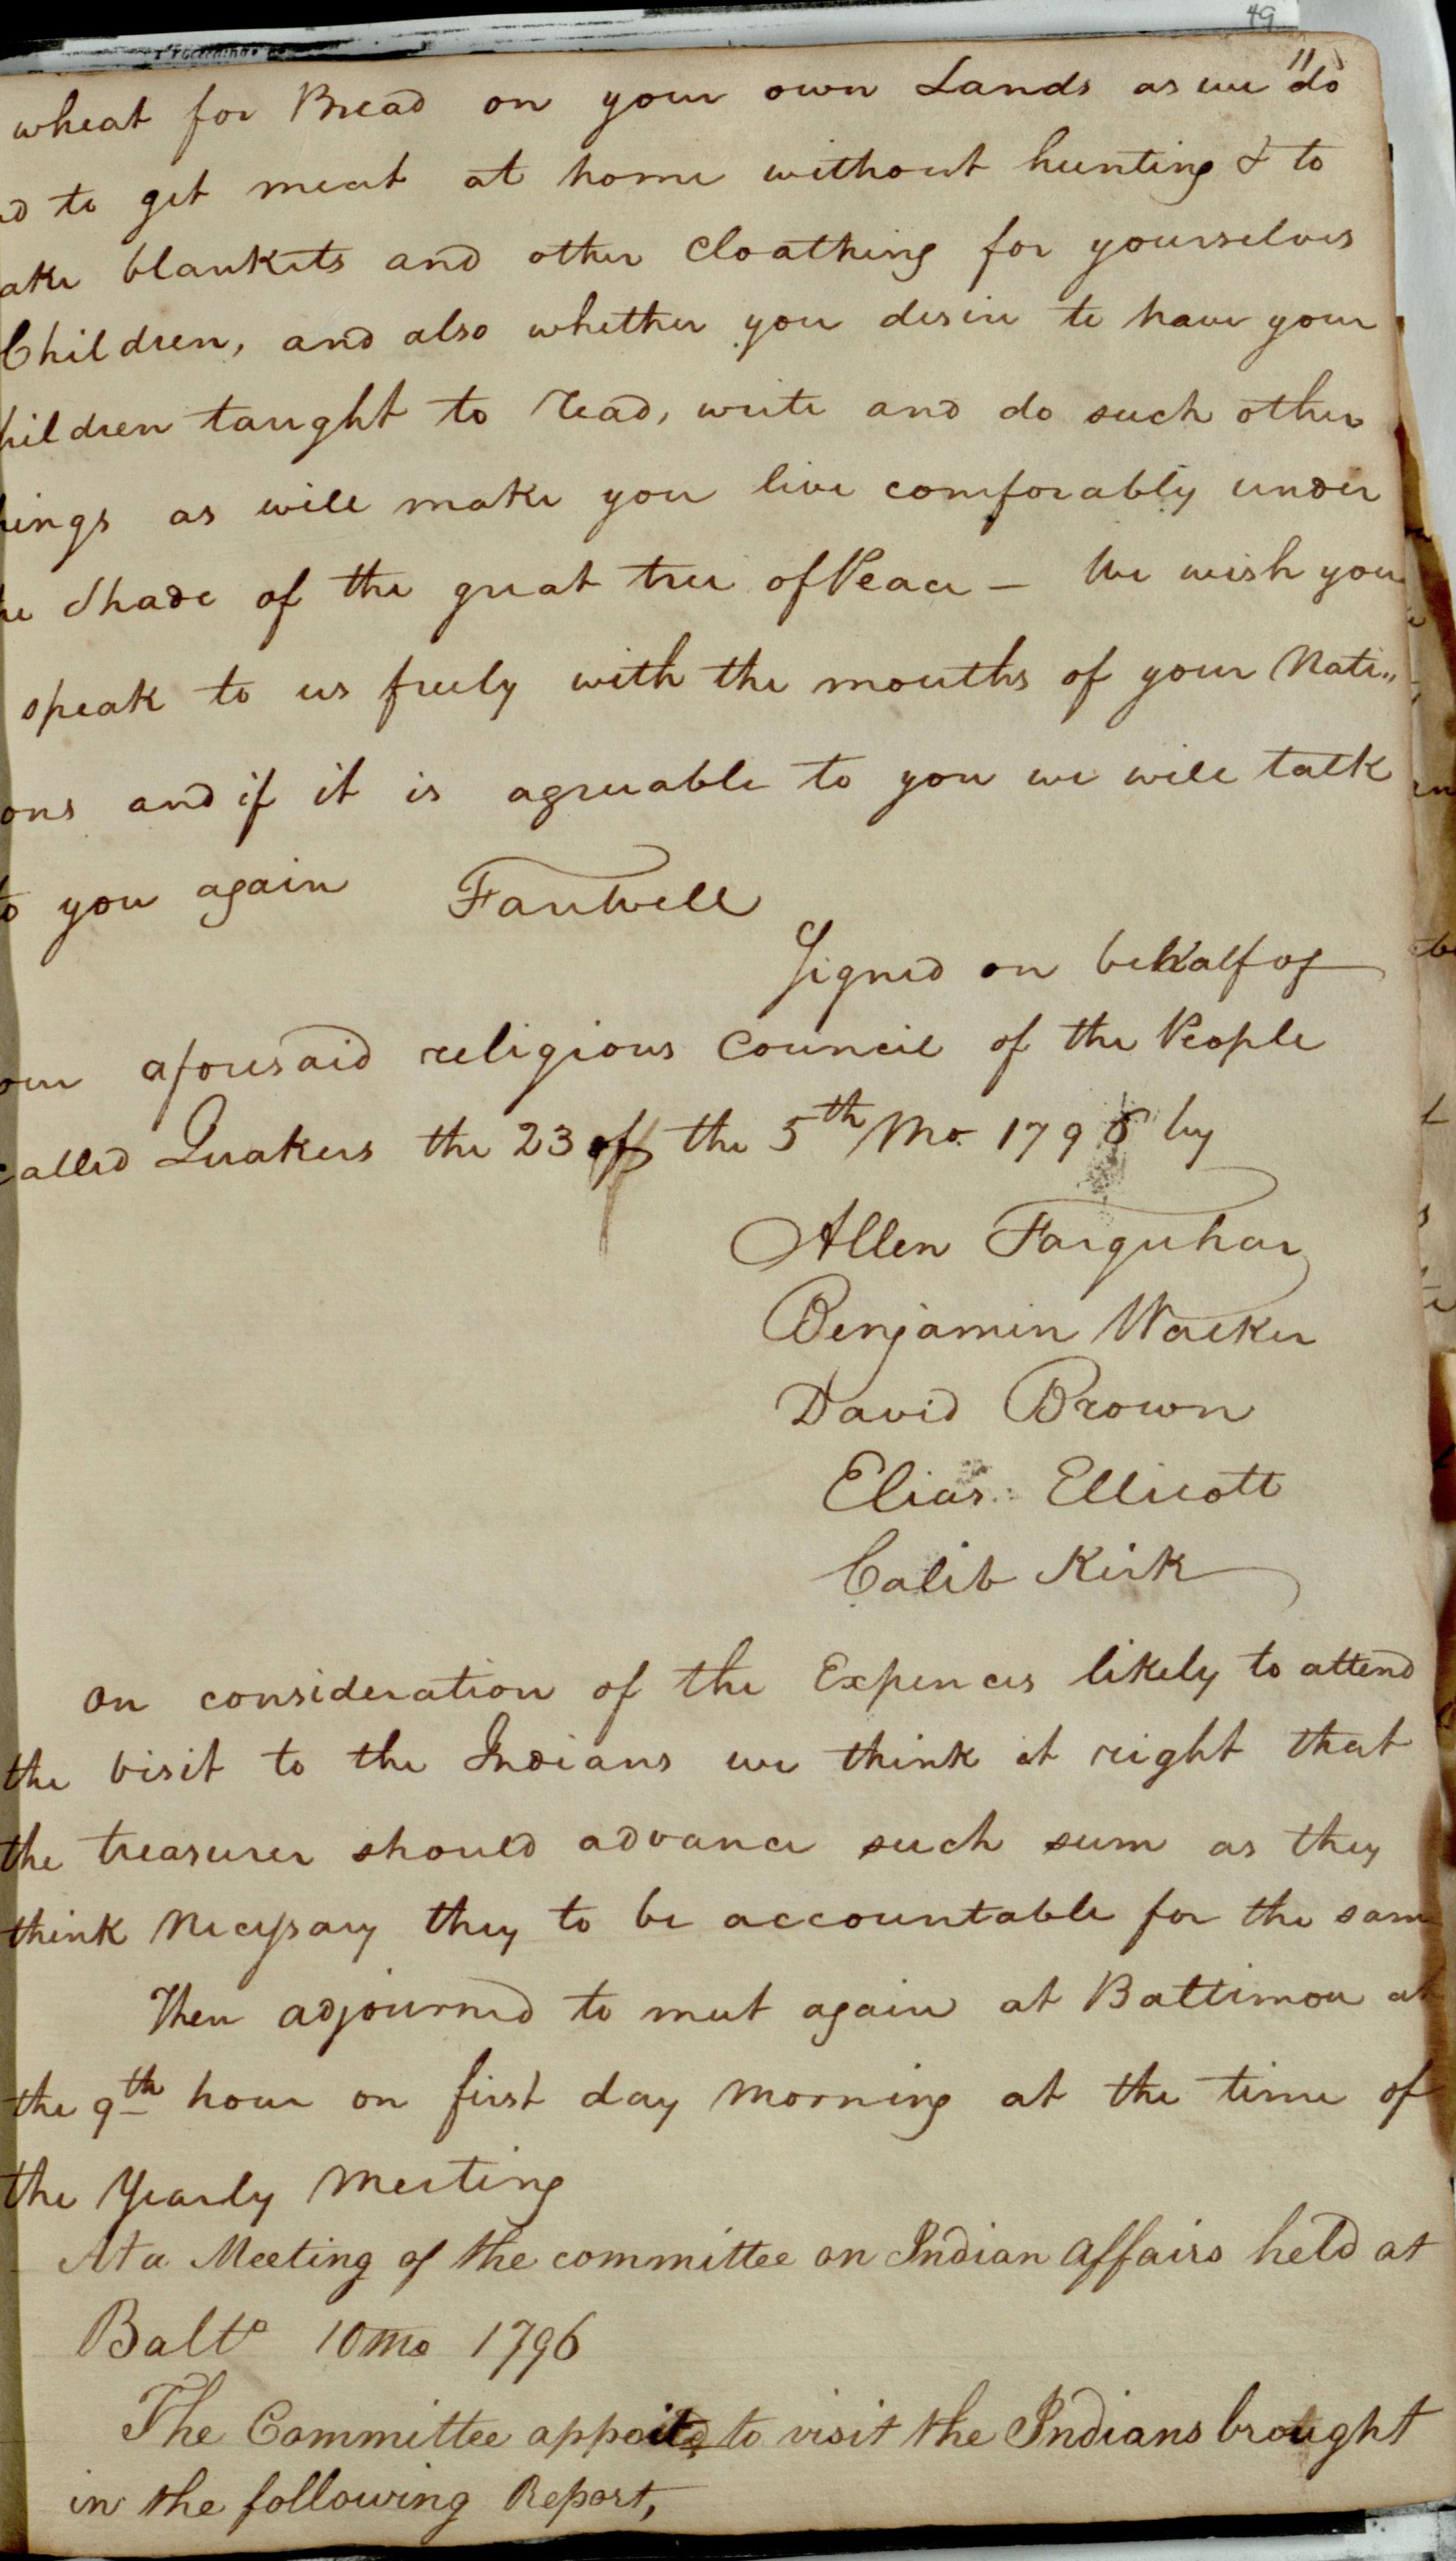 49
11
wheat for Bread on your own Lands as we do
d to get meat at home without hunting & to
ake blankets and other Cloathing for yourselves
Children, and also whether you desire to have your
hildren taught to read, write and do such other
hings as will make you live comforably under
he Shade of the great tree of Peace — We wish you
speak to us freely with the mouths of your Nati"
ons and if it is agreeable to you we will talk
to you again Farewell
Signed on behalf of
our aforesaid religious Council of the People
called Quakers the 23 of the 5th Mo. 1796 by
Allen Farquhar
Benjamin Walker
David Brown
Elias Ellicott
Caleb Kirk
On consideration of the Expences likely to attend
the visit to the Indians we think it right that
the treasurer should advance such sum as they
think Necessary they to be accountable for the same
Then adjourned to meet again at Baltimore at
the 9th hour on first day Morning at the time of
the Yearly Meeting
At a Meeting of the committee on Indian Affairs held at
Balto 10 mo 1796
The Committee appoited to visit the Indians brought
in the following Report,